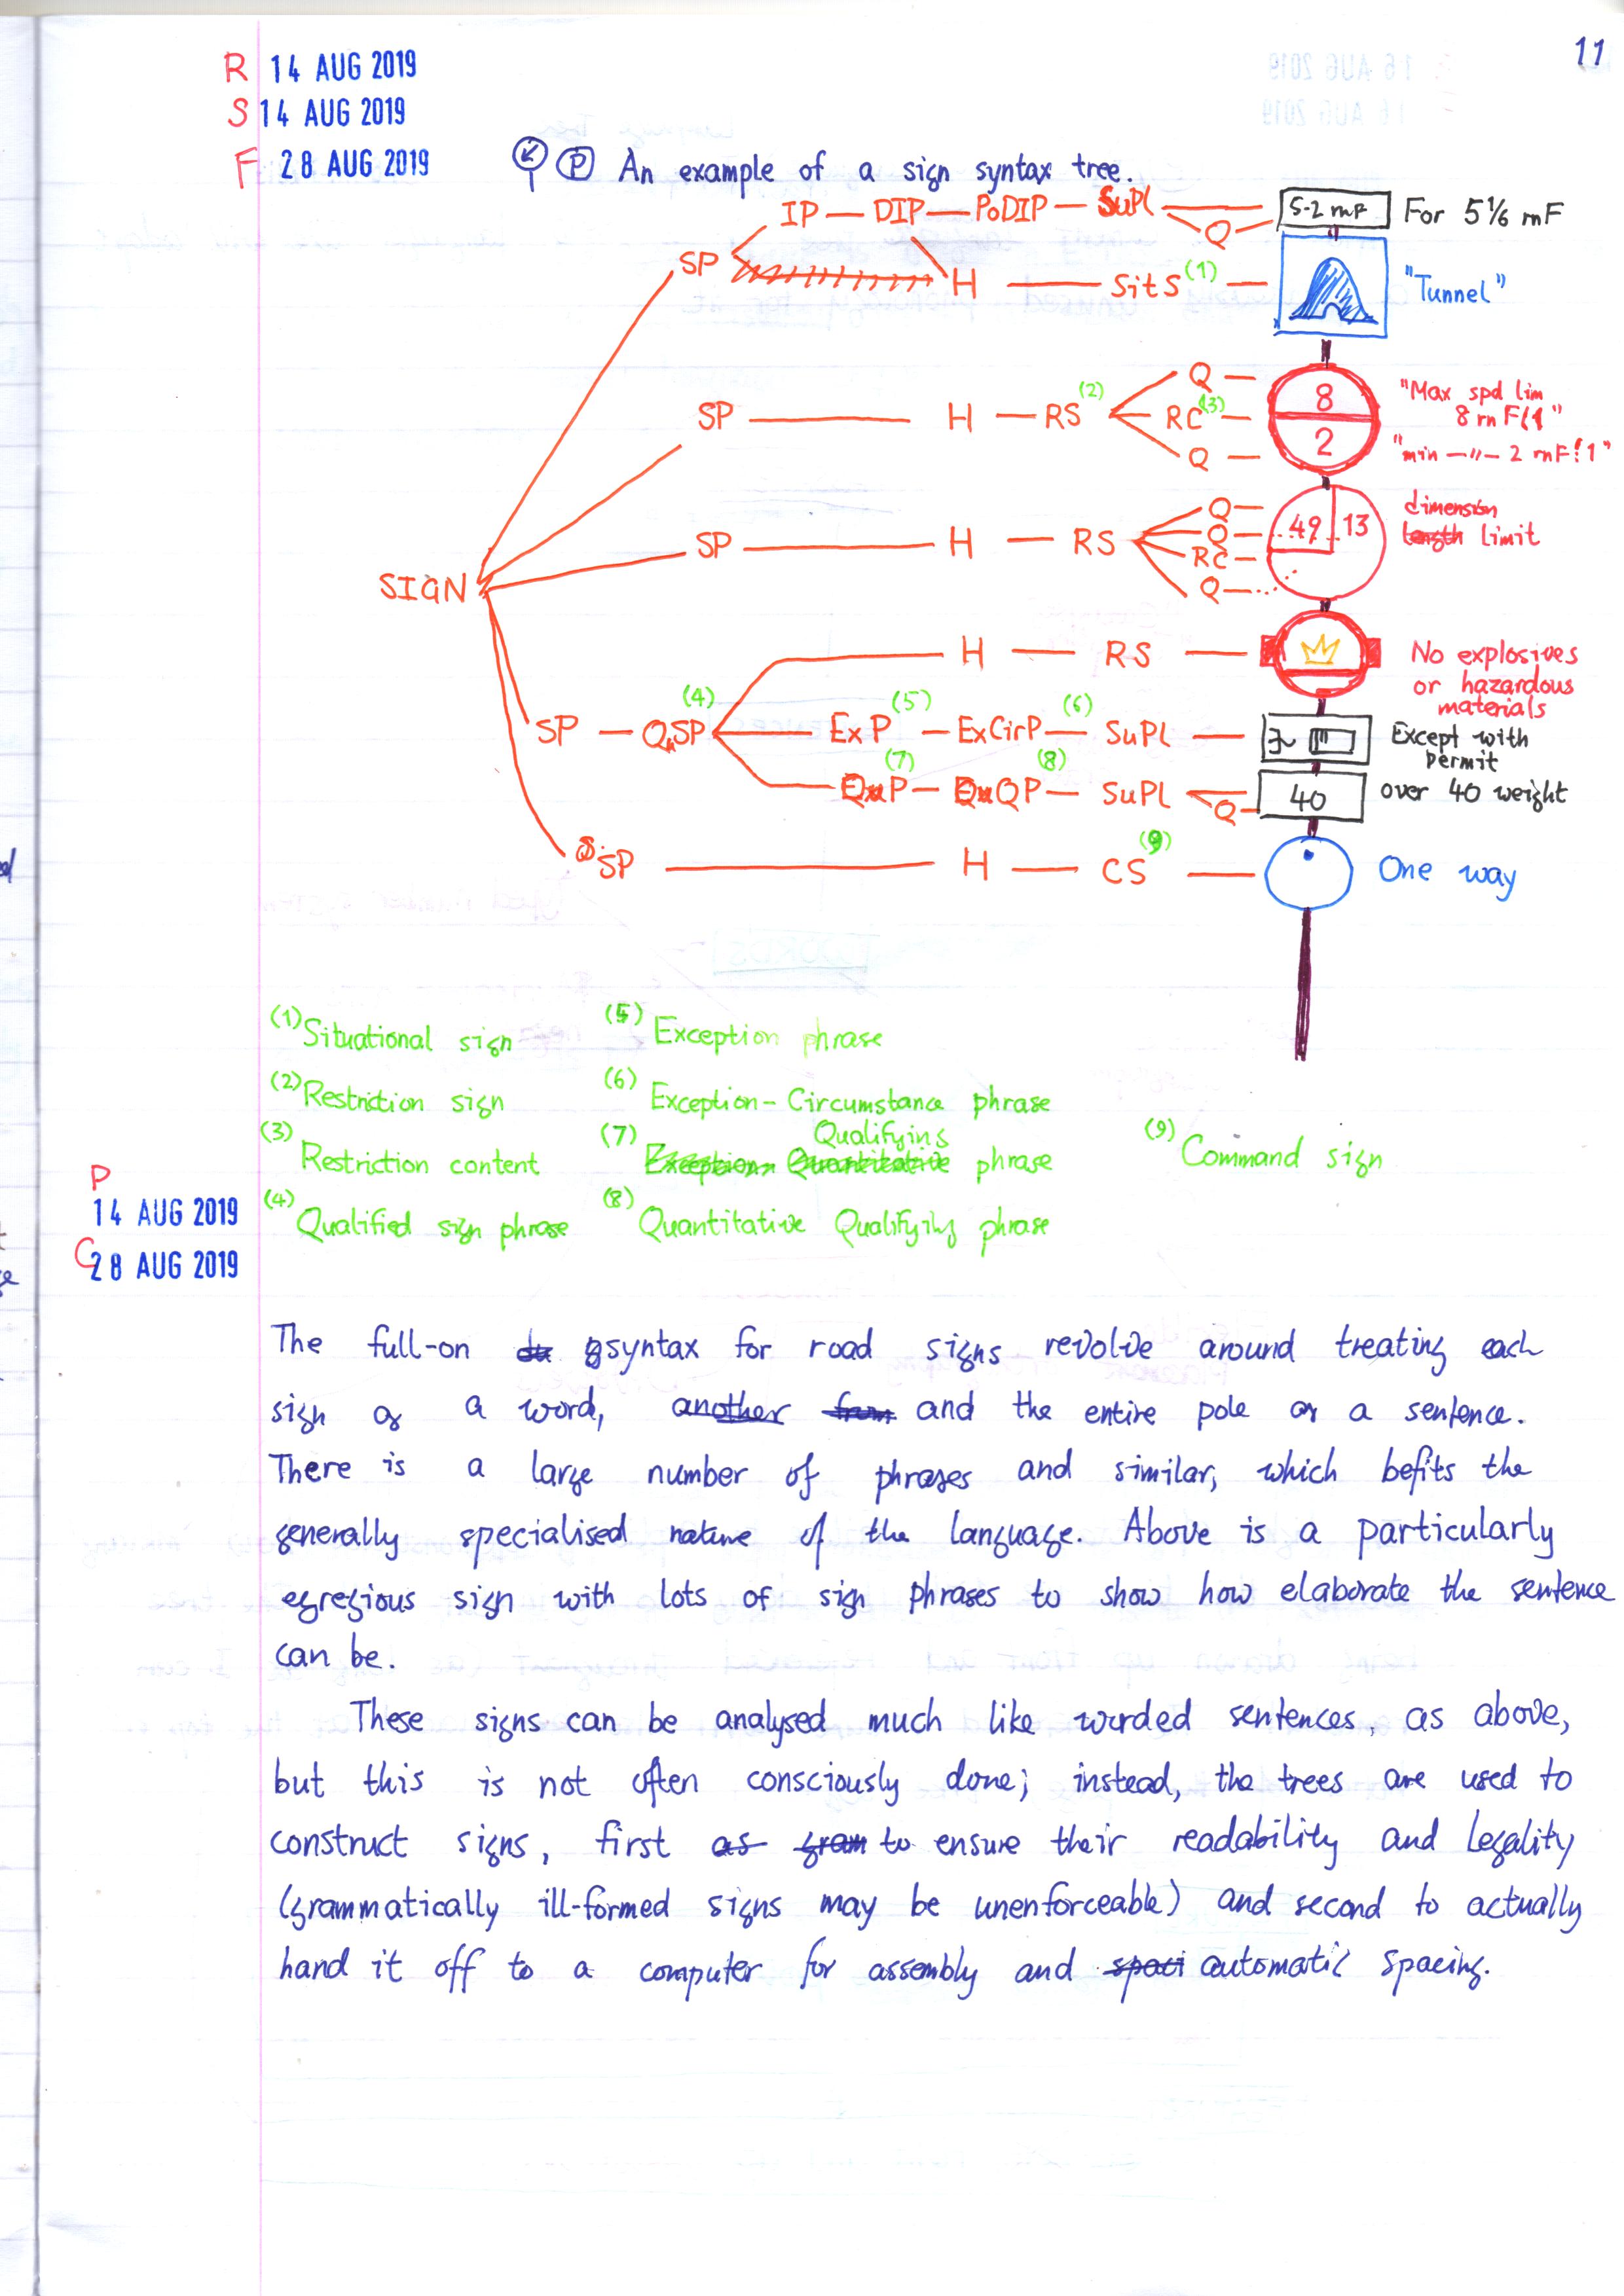 11
R 14 AUG 2019
S 14 AUG 2019
F 28 AUG 2019
P An example of a sign syntax tree.
IP — DIP — PoDIP — SuPl
Q
5-2 mF
For 5⅙ mF
SP
H — SitS (1)
"Tunnel"
SP — H — RS (2)
Q
RC (3)
Q
8
2
"Max spd lim
8 rnF(1"
"min —〃— 2 rnF(1"
SP — H — RS
Q
Q
RC
Q
49 13
dimension
length limit
SIGN
H — RS
No explosives
or hazardous
materials
SP — QSP (4)
ExP (5) — ExCirP (6) — SuPl
Except with
permit
QuP (7) — QuQP (8) — SuPl
Q
40
over 40 weight
SP — H — CS (9)
One way
(1) Situational sign
(2) Restriction sign
(3) Restriction content
(4) Qualified sign phrase
(5) Exception phrase
(6) Exception-Circumstance phrase
(7) Exception Quantitative Qualifying phrase
(8) Quantitative Qualifying phrase
(9) Command sign
P
14 AUG 2019
C
28 AUG 2019
The full-on syntax for road signs revolve around treating each
sign as a word, another from and the entire pole as a sentence.
There is a large number of phrases and similar, which befits the
generally specialised nature of the language. Above is a particularly
egregious sign with lots of sign phrases to show how elaborate the sentence
can be.
These signs can be analysed much like worded sentences, as above,
but this is not often consciously done; instead, the trees are used to
construct signs, first as gram to ensure their readability and legality
(grammatically ill-formed signs may be unenforceable) and second to actually
hand it off to a computer for assembly and spaci automatic spacing.